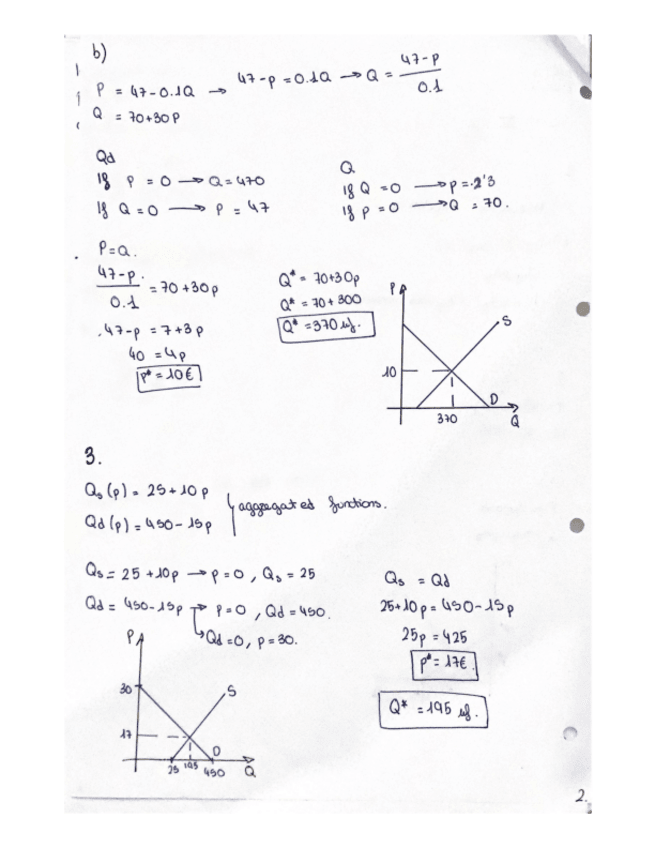 b)
P = 47-0.1Q → 47-p = 0.1Q → Q = 47-p / 0.1
Q = 70+30P
Qd
If P = 0 → Q = 470
If Q = 0 → P = 47
Q
If Q = 0 → p = -2'3
If p = 0 → Q = 70.
P=Q.
47-p / 0.1 = 70+30p
47-p = 7+3p
40 = 4p
p* = 10€
Q* = 70+30p
Q* = 70+300
Q* = 370 uf.
P
S
10
D
370
Q
3.
Qs(p) = 25+10p
Qd(p) = 450-15p
aggregated functions.
Qs = 25+10p → p=0, Qs = 25
Qd = 450-15p → p=0, Qd = 450.
→ Qd=0, p=30.
P
30
S
17
D
25 195 450 Q
Qs = Qd
25+10p = 450-15p
25p = 425
p* = 17€.
Q* = 195 uf.
2.